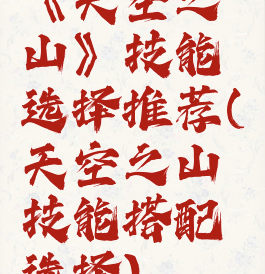 《天空之
山》技能
选择推荐(
天空之山
技能搭配
选择)